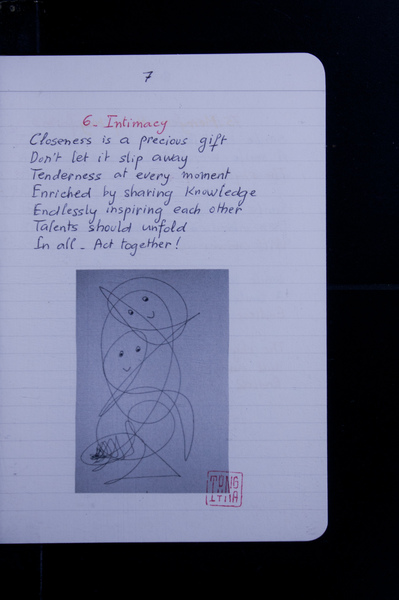 7
6- Intimacy
Closeness is a precious gift
Don't let it slip away
Tenderness at every moment
Enriched by sharing Knowledge
Endlessly inspiring each other
Talents should unfold
In all - Act together!